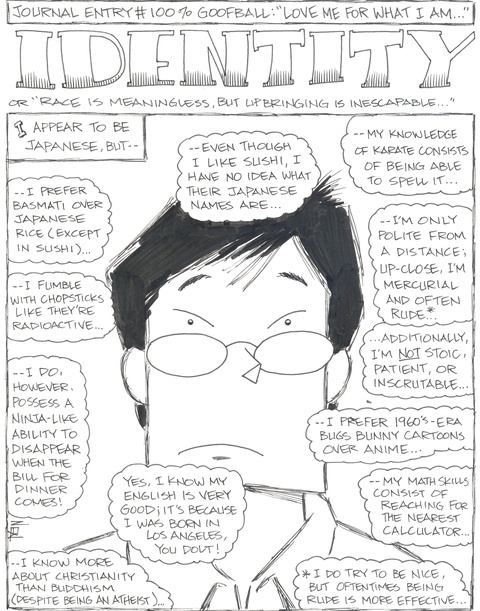 JOURNAL ENTRY # 100 % GOOFBALL: "LOVE ME FOR WHAT I AM..."
IDENTITY
OR "RACE IS MEANINGLESS, BUT UPBRINGING IS INESCAPABLE..."
I APPEAR TO BE
JAPANESE, BUT--
--EVEN THOUGH
I LIKE SUSHI, I
HAVE NO IDEA WHAT
THEIR JAPANESE
NAMES ARE...
--MY KNOWLEDGE
OF KARATE CONSISTS
OF BEING ABLE
TO SPELL IT...
--I PREFER
BASMATI OVER
JAPANESE
RICE (EXCEPT
IN SUSHI)...
--I'M ONLY
POLITE FROM
A DISTANCE;
UP-CLOSE, I'M
MERCURIAL
AND OFTEN
RUDE.*
--I FUMBLE
WITH CHOPSTICKS
LIKE THEY'RE
RADIOACTIVE...
...ADDITIONALLY,
I'M NOT STOIC,
PATIENT, OR
INSCRUTABLE...
--I DO,
HOWEVER,
POSSESS A
NINJA-LIKE
ABILITY TO
DISAPPEAR
WHEN THE
BILL FOR
DINNER
COMES!
--I PREFER 1960'S-ERA
BUGS BUNNY CARTOONS
OVER ANIME...
YES, I KNOW MY
ENGLISH IS VERY
GOOD; IT'S BECAUSE
I WAS BORN IN
LOS ANGELES,
YOU DOLT!
--MY MATH SKILLS
CONSIST OF
REACHING FOR
THE NEAREST
CALCULATOR...
--I KNOW MORE
ABOUT CHRISTIANITY
THAN BUDDHISM
(DESPITE BEING AN ATHEIST)...
* I DO TRY TO BE NICE,
BUT OFTENTIMES BEING
RUDE IS MORE EFFECTIVE...